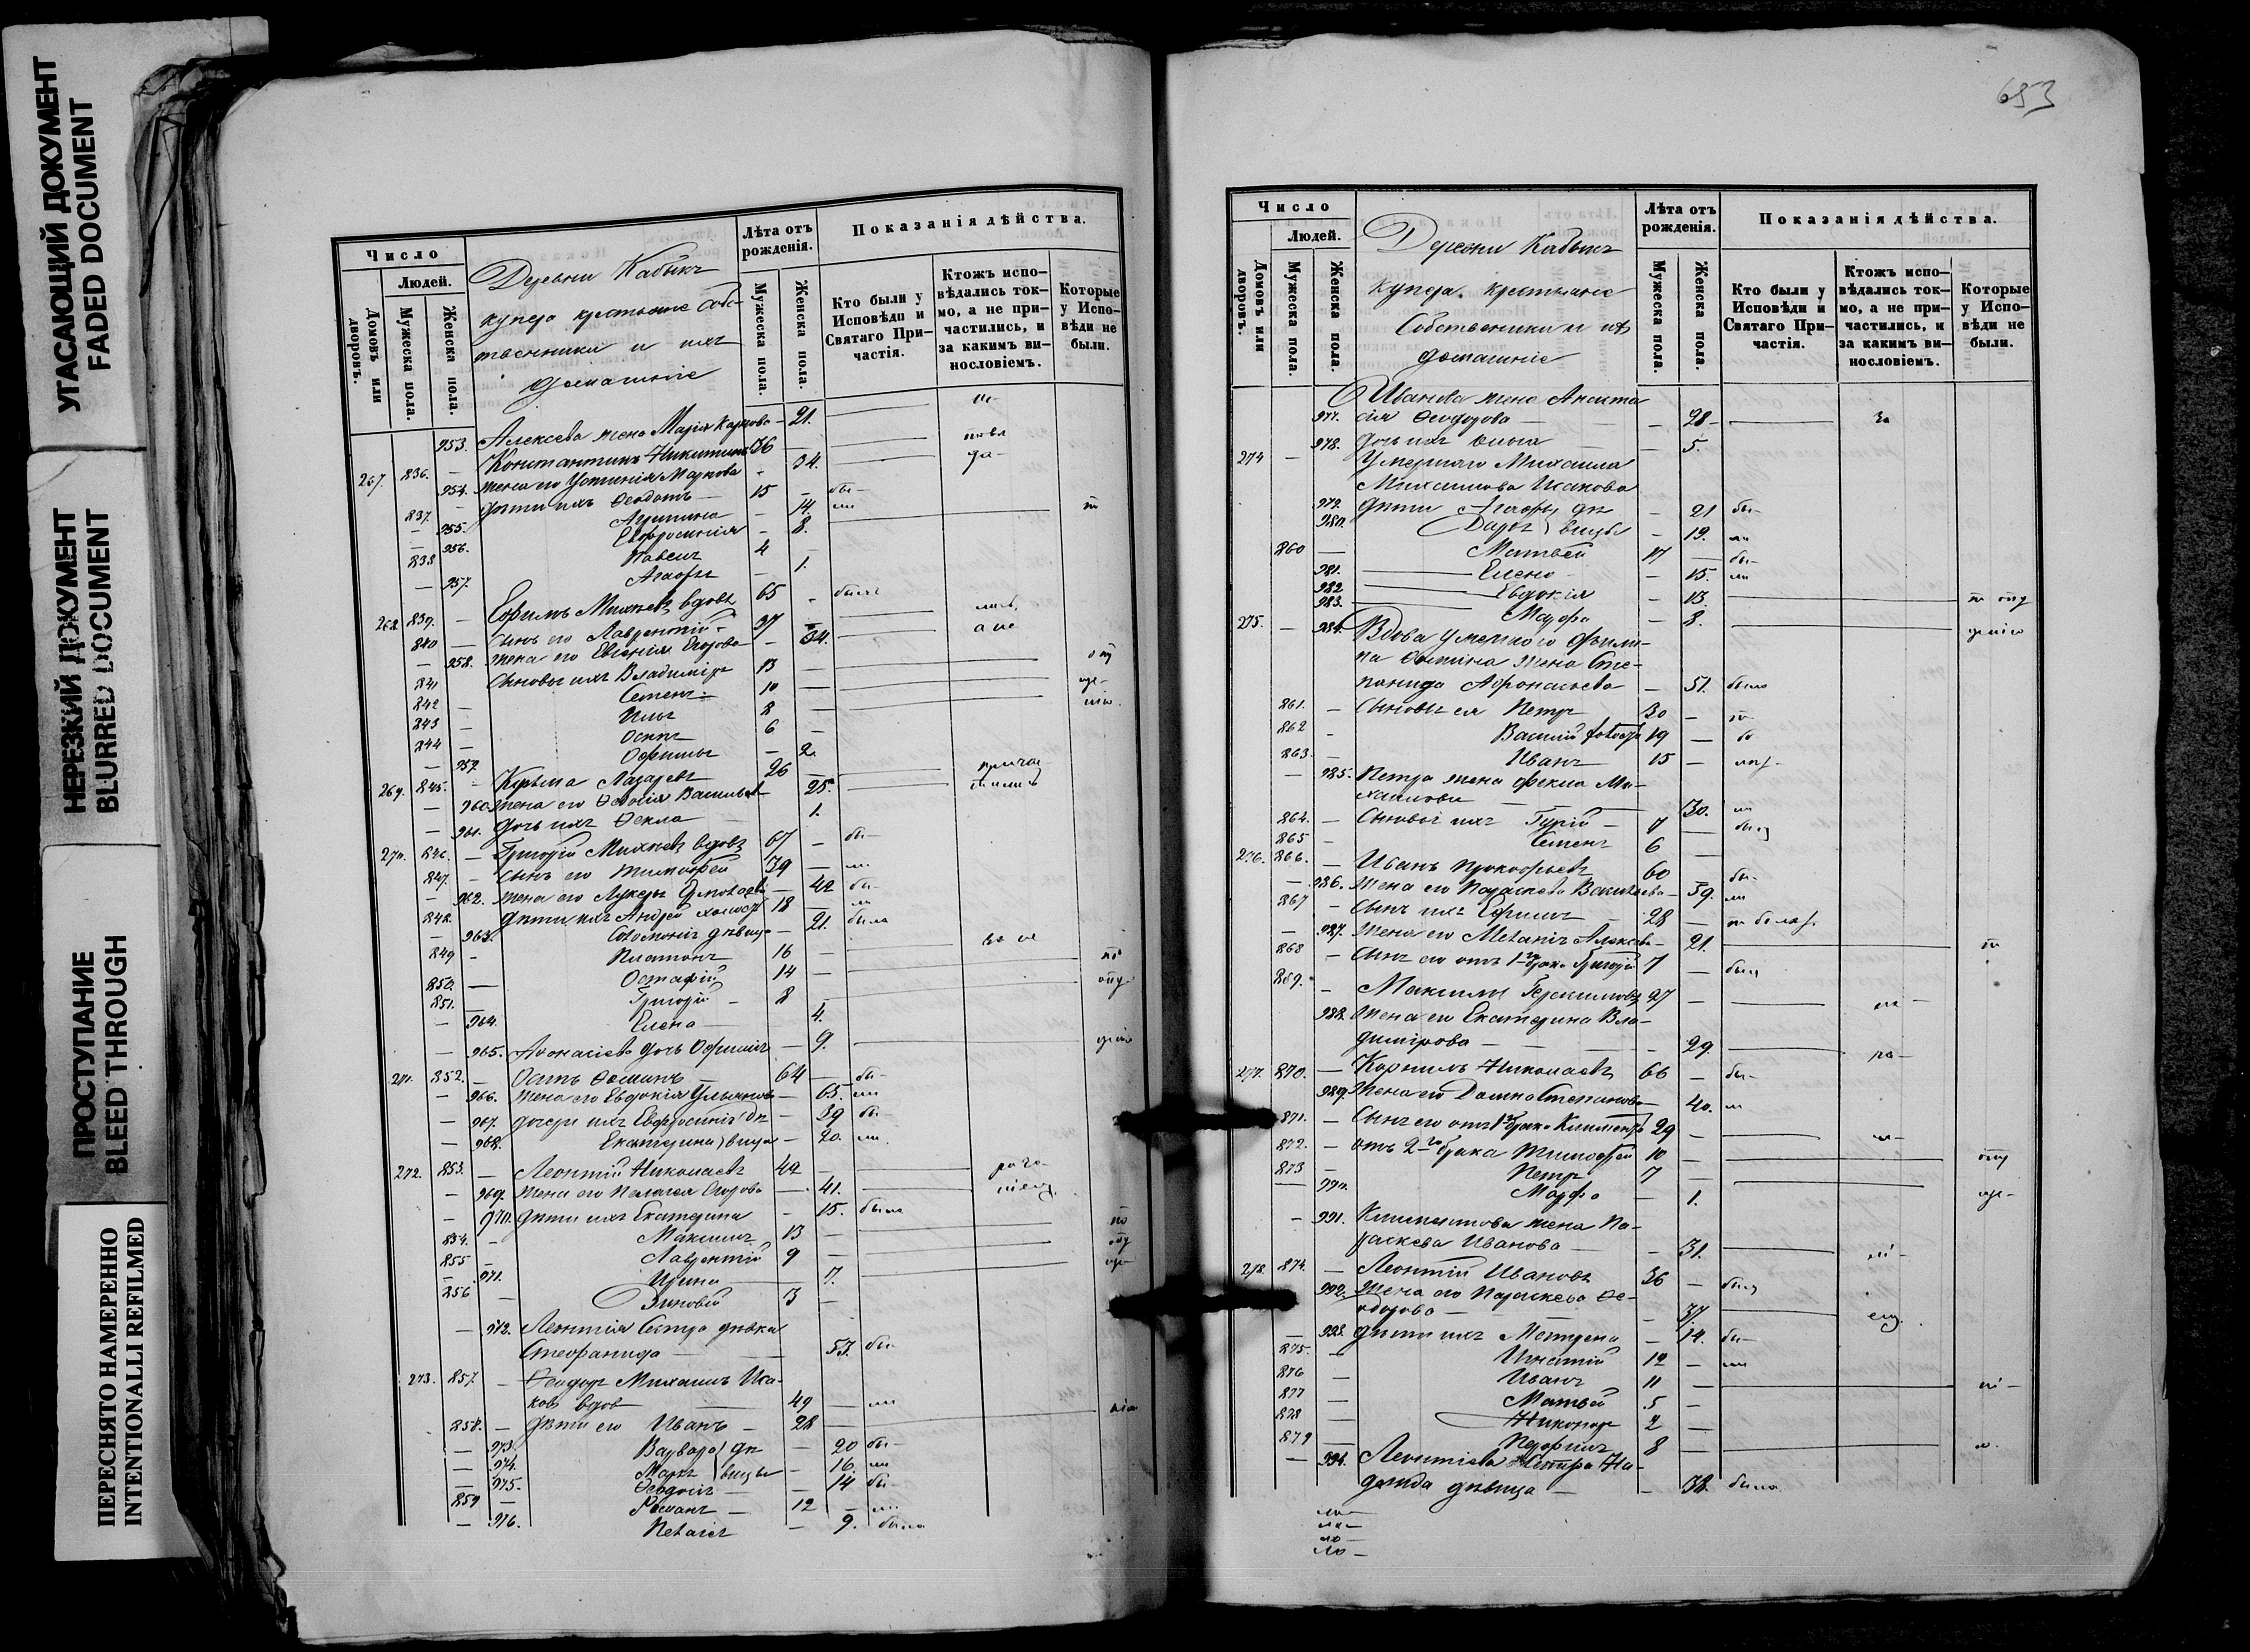 УГАСАЮЩИЙ ДОКУМЕНТ
FADED DOCUMENT
НЕРЕЗКИЙ ДОКУМЕНТ
BLURRED DOCUMENT
ПРОСТУПАНИЕ
BLEED THROUGH
ПЕРЕСНЯТО НАМЕРЕННО
INTENTIONALLI REFILMED
Число
Людей.
Домовъ или дворовъ.
Мужеска пола.
Женска пола.
Деревни Кабыкъ
купера крестьяне Соб-
ственники и ихъ
домашніе
Лѣта отъ рожденія.
Мужеска пола.
Женска пола.
Показанія дѣйства.
Кто были у Исповѣди и Святаго При-частія.
Ктожъ испо-вѣдались ток-мо, а не при-частились, и за какимъ ви-нословіемъ.
Которые у Испо-вѣди не были.
953. Алексѣева жена Марія Карпова - 21.
267. 836. - Константинъ Никитинъ 36 -
954. жена его Устинія Маркова - 34.
837. - дѣти ихъ Ѳеодотъ 15 -
- 955. Агрипина - 14.
- 956. Евфросинія - 8.
838 Павелъ 4 -
- 957. Агафья - 1.
268. 839. - Ефимъ Михѣевъ вдовъ 65 - былъ
840 - Сынъ его Лаврентій 37 -
- 958. жена его Евгенія Егорова - 34.
841 Сыновья ихъ Владиміръ 13 -
842 - Семенъ 10 -
243 - Илья 8 -
244 - Осипъ 6 -
- 959. Офимья - 2.
269. 845. - Козьма Лазаревъ 26 -
- 960. жена его Ѳедосія Васильева - 25.
- 961. дочь ихъ Ѳекла - 1.
270. 846. - Григорій Михѣевъ вдовъ 67 - бы-
847. - Сынъ его Тимофей 39 - ли
- 962. жена его Лукерья Ермолаева - 42 бы-
848. дѣти ихъ Андрей холостъ 18 - ли
- 963. Соломонія дѣвица - 21. была
849 - Платонъ 16 -
850. - Остафій 14 -
851. - Григорій - 8 -
- 964. Елена - 4.
- 965. Аѳонасіева дочь Офимія - 9.
271. 852. - Осипъ Ѳоминъ 64 - бы-
- 966. жена его Евдокія Ульянова - 65. ли
- 967. дочери ихъ Евфросинія дѣ- - 39 бы-
- 968. Екатерина вицы - 20. ли
272. 853. - Леонтій Николаевъ 42 -
- 969. жена его Пелагея Егорова - 41.
- 970. дѣти ихъ Екатерина - 15. была
854. - Максимъ 13 -
855 - Лаврентій 9 -
- 971. Ирина - 7.
856 - Зиновей 3 -
- 972. Леонтія Сестра дѣвка
Стефанида - 53. бы-
273. 857. - Ѳеодоръ Михаиловъ Иса-
ковъ вдовъ 49 ли
858. - дѣти его Иванъ - 28
- 973. Варвара дѣ- - 20 бы-
- 974. Марья вицы - 16 ли
- 975. Ѳеодосія - 14 бы-
859 - Романъ - 12 - ли
- 976. Пелагея - 9. была
653
Число
Людей.
Домовъ или дворовъ.
Мужеска пола.
Женска пола.
Деревни Кабыкъ
купера. крестьяне
Собственники и ихъ
домашніе
Лѣта отъ рожденія.
Мужеска пола.
Женска пола.
Показанія дѣйства.
Кто были у Исповѣди и Святаго При-частія.
Ктожъ испо-вѣдались ток-мо, а не при-частились, и за какимъ ви-нословіемъ.
Которые у Испо-вѣди не были.
Иванова жена Анаста
977. сія Ѳеодорова - 28 - за
978. дочь ихъ Ольга - 5.
274 - Умершаго Михаила
Михаилова Исакова
979. дѣти Агафья дѣ- - 21 бы-
980. Дарья вицы - 19. ли
860 - Матвей 17 - бы-
981. Елена - 15. ли
982 Евдокія - 13.
983. Марфа - 8.
275. - 984. Вдова умершаго Филип-
па Ѳомина жена Сте-
панида Афонасьева - 51. была
861. - Сыновья ея Петръ 30 -
862 - Василій холостъ 19 -
863. - Иванъ 15 -
- 985. Петра жена Фекла Ми-
хаилова - 30. ли
864. - Сыновья ихъ Гурій 7 -
865 - Семенъ 6 -
276. 866. - Иванъ Прокофьевъ 60 бы-
- 986. жена его Параскева Васильева - 59. ли
867 - Сынъ ихъ Ефимъ - 28 -
- 987. жена его Меланія Алексѣева - 21.
868 - Сынъ его отъ 1го брака Григорій 7 -
869. - Максимъ Герасимовъ 27 -
988. жена его Екатерина Вла-
димірова - 29.
277. 870. - Корнилъ Николаевъ 66 - бы-
989. жена его Домна Степанова - 40. ли
871. - Сынъ его отъ 1го брака Климентъ 29 -
872. - отъ 2го брака Тимофей 10 -
873 - Петръ 7 -
- 990. Марфа - 1.
- 991. Климентова жена Па-
раскева Иванова - 31.
278 874. - Леонтій Ивановъ 36 -
992. жена его Параскева Ѳе-
одорова - 37.
- 993. дѣти ихъ Матрена - 14. бы-
875. - Игнатій 12 - ли
876 - Иванъ 11 -
877 - Матвей 5 -
878 - Никоноръ 2 -
879 - Порфирій 8 -
- 994. Леонтіева Сестра На-
дежда дѣвица - 38. была